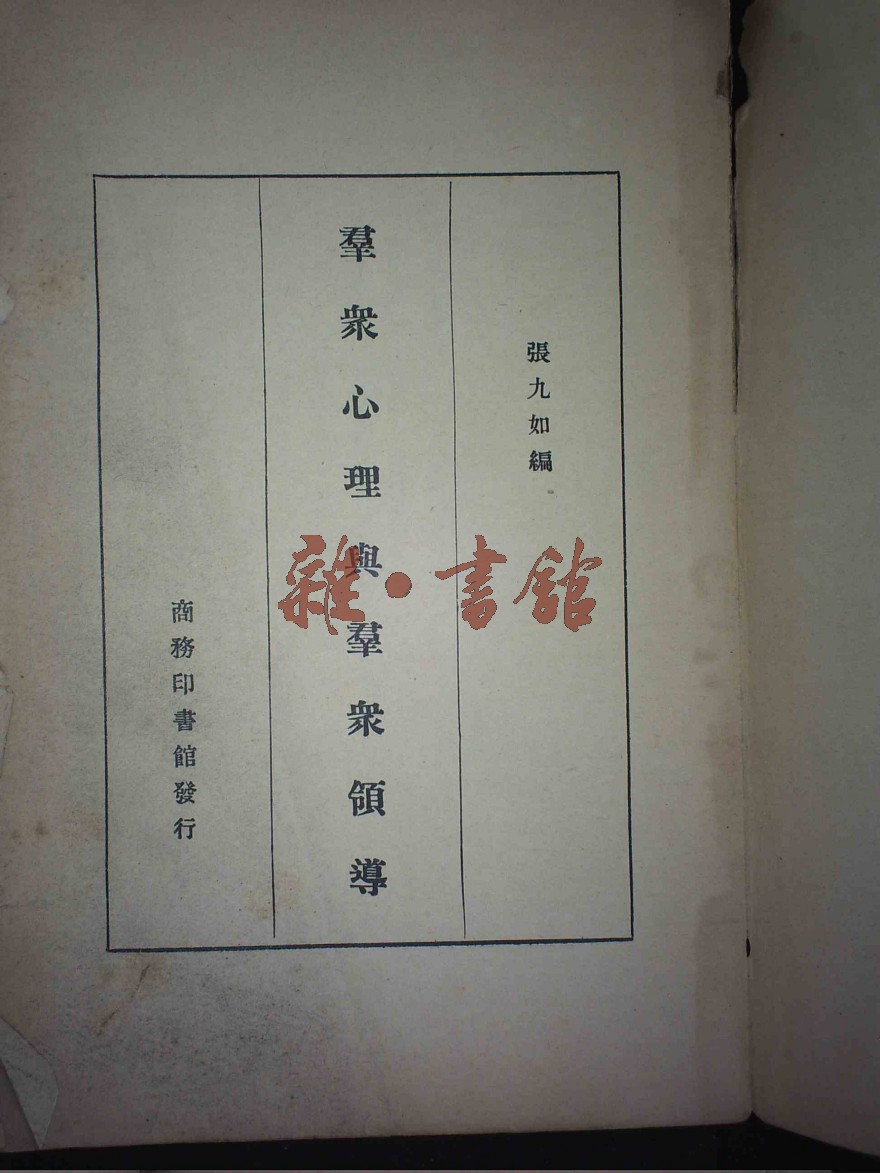 張九如編
羣衆心理與羣衆領導
商務印書館發行
雜·書館